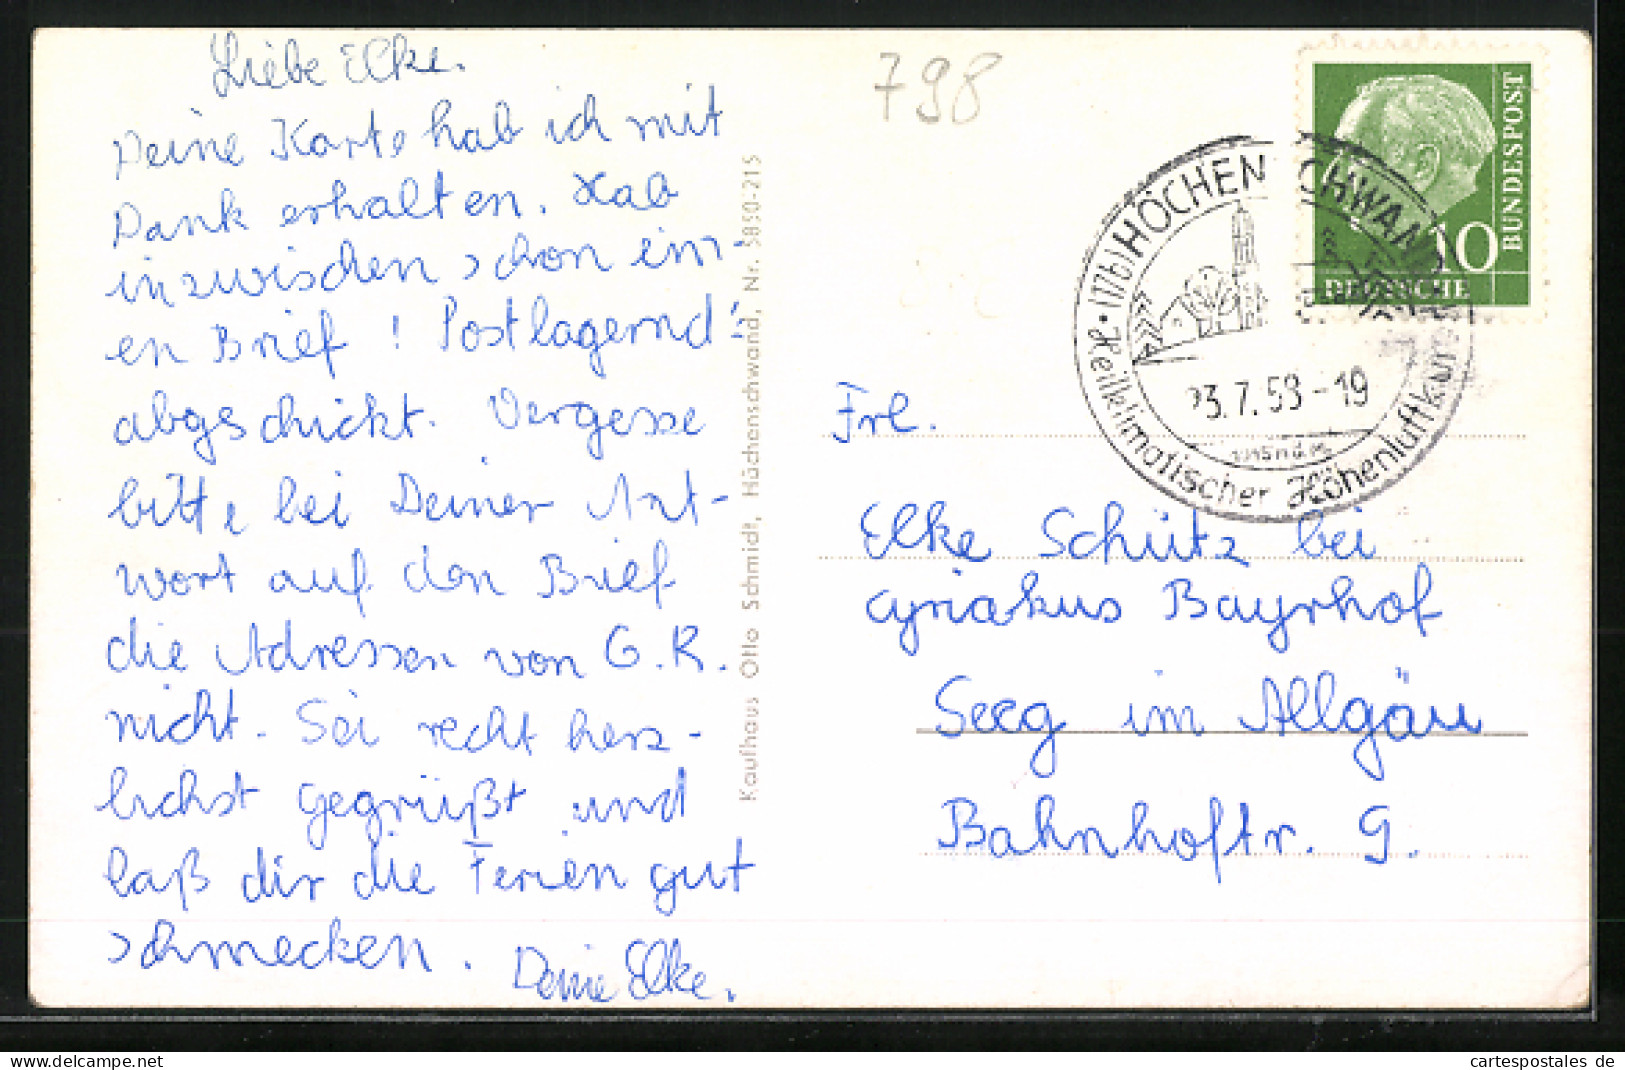 Liebe Elke.
Deine Karte hab ich mit
Dank erhalten. Hab
inzwischen schon ein-
en Brief! Postlagernd
abgeschickt. Vergesse
bitte bei Deiner Ant-
wort auf den Brief
die Adressen von G.R.
nicht. Sei recht herz-
lichst gegrüßt und
laß dir die Ferien gut
schmecken.
Deine Elke.
Kaufhaus Otto Schmidt, Höchenschwand, Nr. 5850-215
798
BUNDESPOST
10
DEUTSCHE
(17b) HÖCHENSCHWAND
3.7.53-19
Heilklimatischer Höhenluftkurort
Frl.
Elke Schütz bei
Cyriakus Bayrhof
Seeg im Allgäu
Bahnhoftr. 9.
www.delcampe.net
cartespostales de